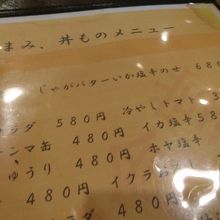 まみ、丼ものメニュー
じゃがバターいか塩辛のせ 680
ラダ 580円 冷やしトマト 3
ンマ缶 480円 イカ塩辛580
ゅうり 480円 ホヤ塩辛
480円 イクラお
ダ 480円